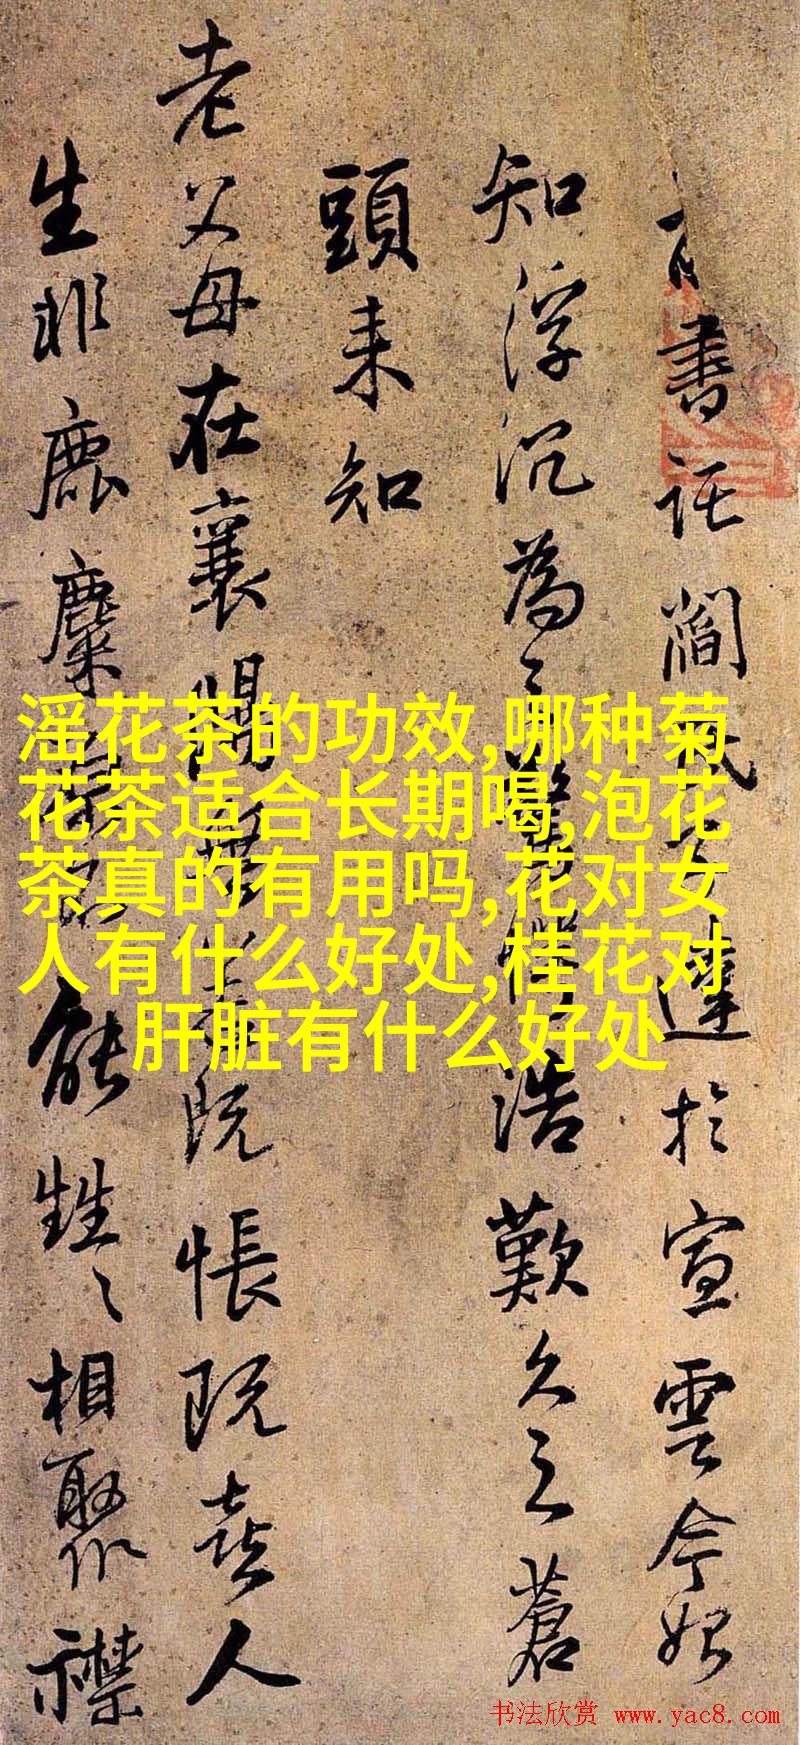 書託閻達於宣雲今始
知浮沉為之浩歎久之蒼
頭来知
老父母在襄陽既悵既喜人
生非鹿麋能甡々相聚襟
滛花茶的功效,哪种菊
花茶适合长期喝,泡花
茶真的有用吗,花对女
人有什么好处,桂花对
肝脏有什么好处
书法欣赏 www.yac8.com